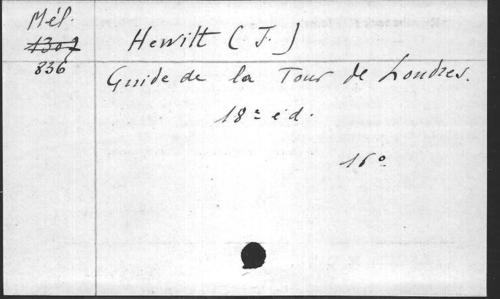 Mél.
1307
836
Hewitt (J.)
Guide de la Tour de Londres.
18e éd.
16o